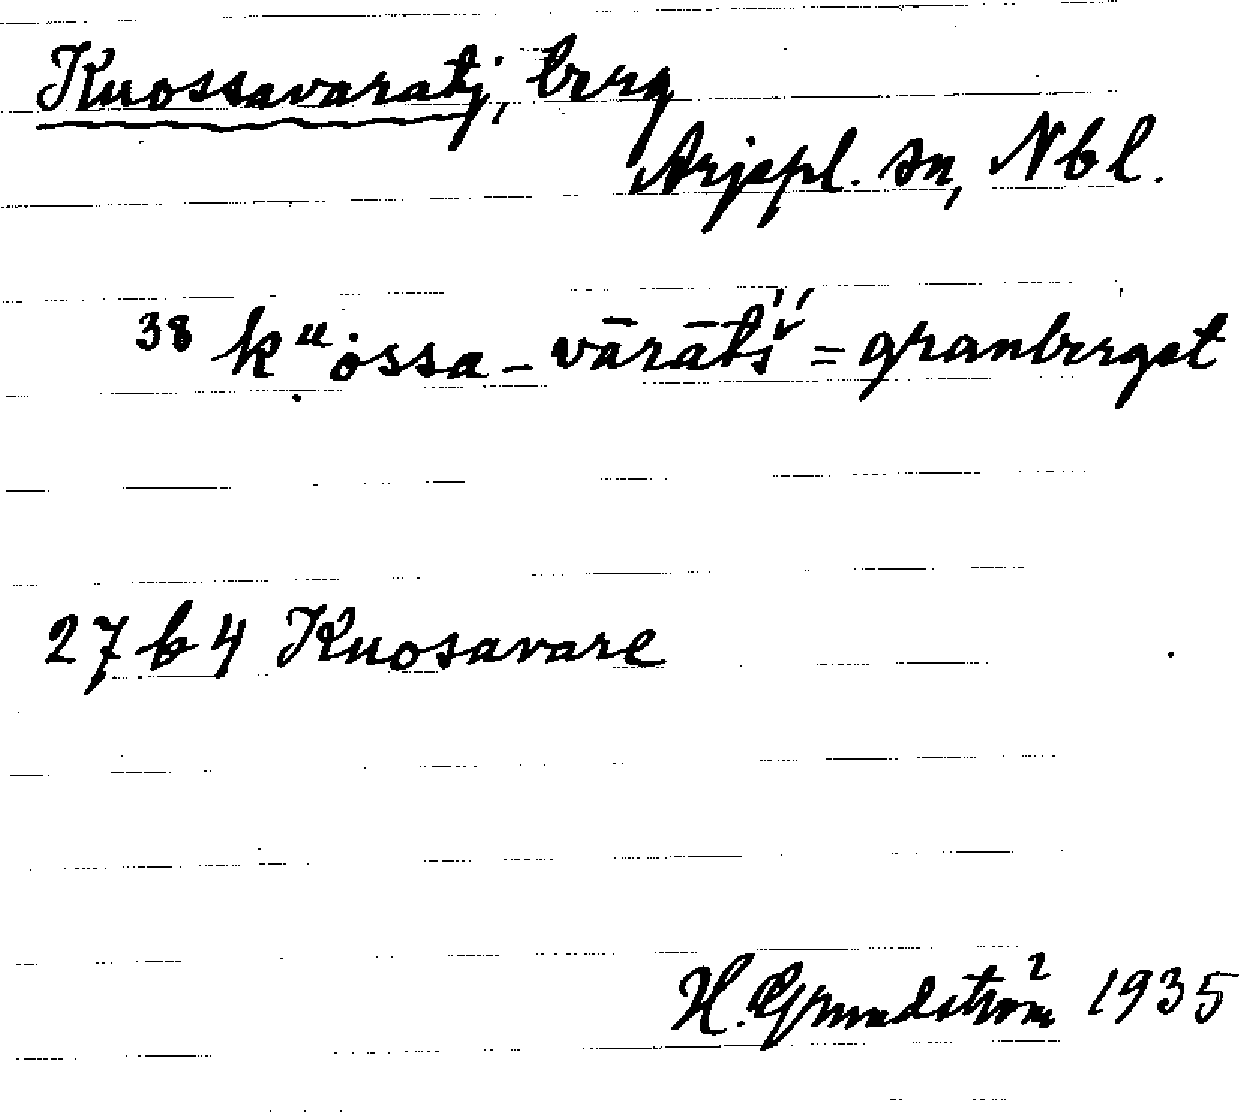 Kuossavaratj, berg
Arjepl. sn, Nbl.
38 kᵘȯssa-vārātś̌ = granberget
27 b 4 Kuosavare
H. Grundström 1935